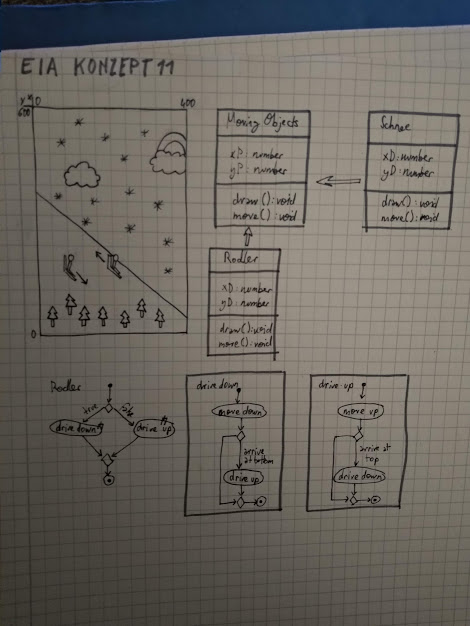 EIA KONZEPT 11
y x 0
400
600
0
Moving Objects
xP: number
yP: number
draw(): void
move(): void
Schnee
xD: number
yD: number
draw(): void
move(): void
Rodler
xD: number
yD: number
draw(): void
move(): void
Rodler
true
false
drive down
drive up
drive down
move down
arrive
at bottom
drive up
drive up
move up
arrive at
top
drive down